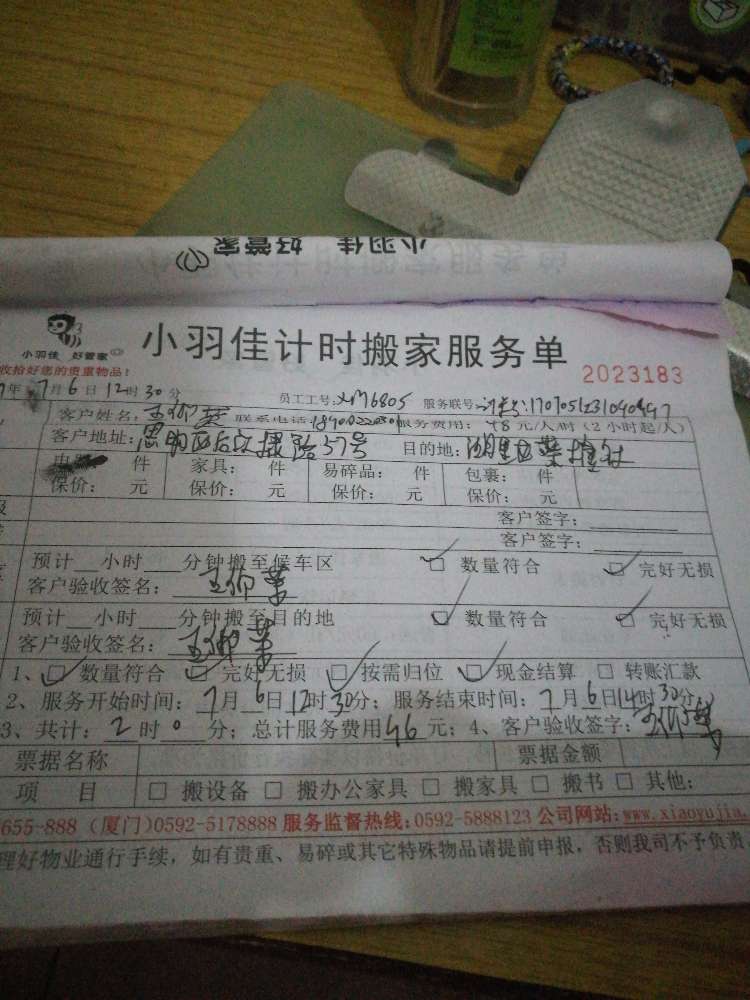 小羽佳 好管家
小羽佳 好管家
小羽佳计时搬家服务单
2023183
收拾好您的贵重物品!
年 7月6日12时30分 员工工号: XM6805 服务联号:
客户姓名: 联系电话: 服务费用: 48元/人/时(2小时起/人)
客户地址: 思明区后 路57号 目的地: 湖里区
件 家具: 件 易碎品: 件 包裹: 件
保价: 元 保价: 元 保价: 元 保价: 元
客户签字:
客户签字:
预计 小时 分钟搬至候车区 数量符合 完好无损
客户验收签名:
预计 小时 分钟搬至目的地 数量符合 完好无损
客户验收签名:
1、 数量符合 完好无损 按需归位 现金结算 转账汇款
2、服务开始时间: 7月6日12时30分; 服务结束时间: 7月6日14时30分;
3、共计: 2时0分; 总计服务费用 元; 4、客户验收签字:
票据名称 票据金额
项 目 搬设备 搬办公家具 搬家具 搬书 其他:
655-888 (厦门)0592-5178888 服务监督热线:0592-5888123 公司网站:www.xiaoyujia.
理好物业通行手续,如有贵重、易碎或其它特殊物品请提前申报,否则我司不予负责